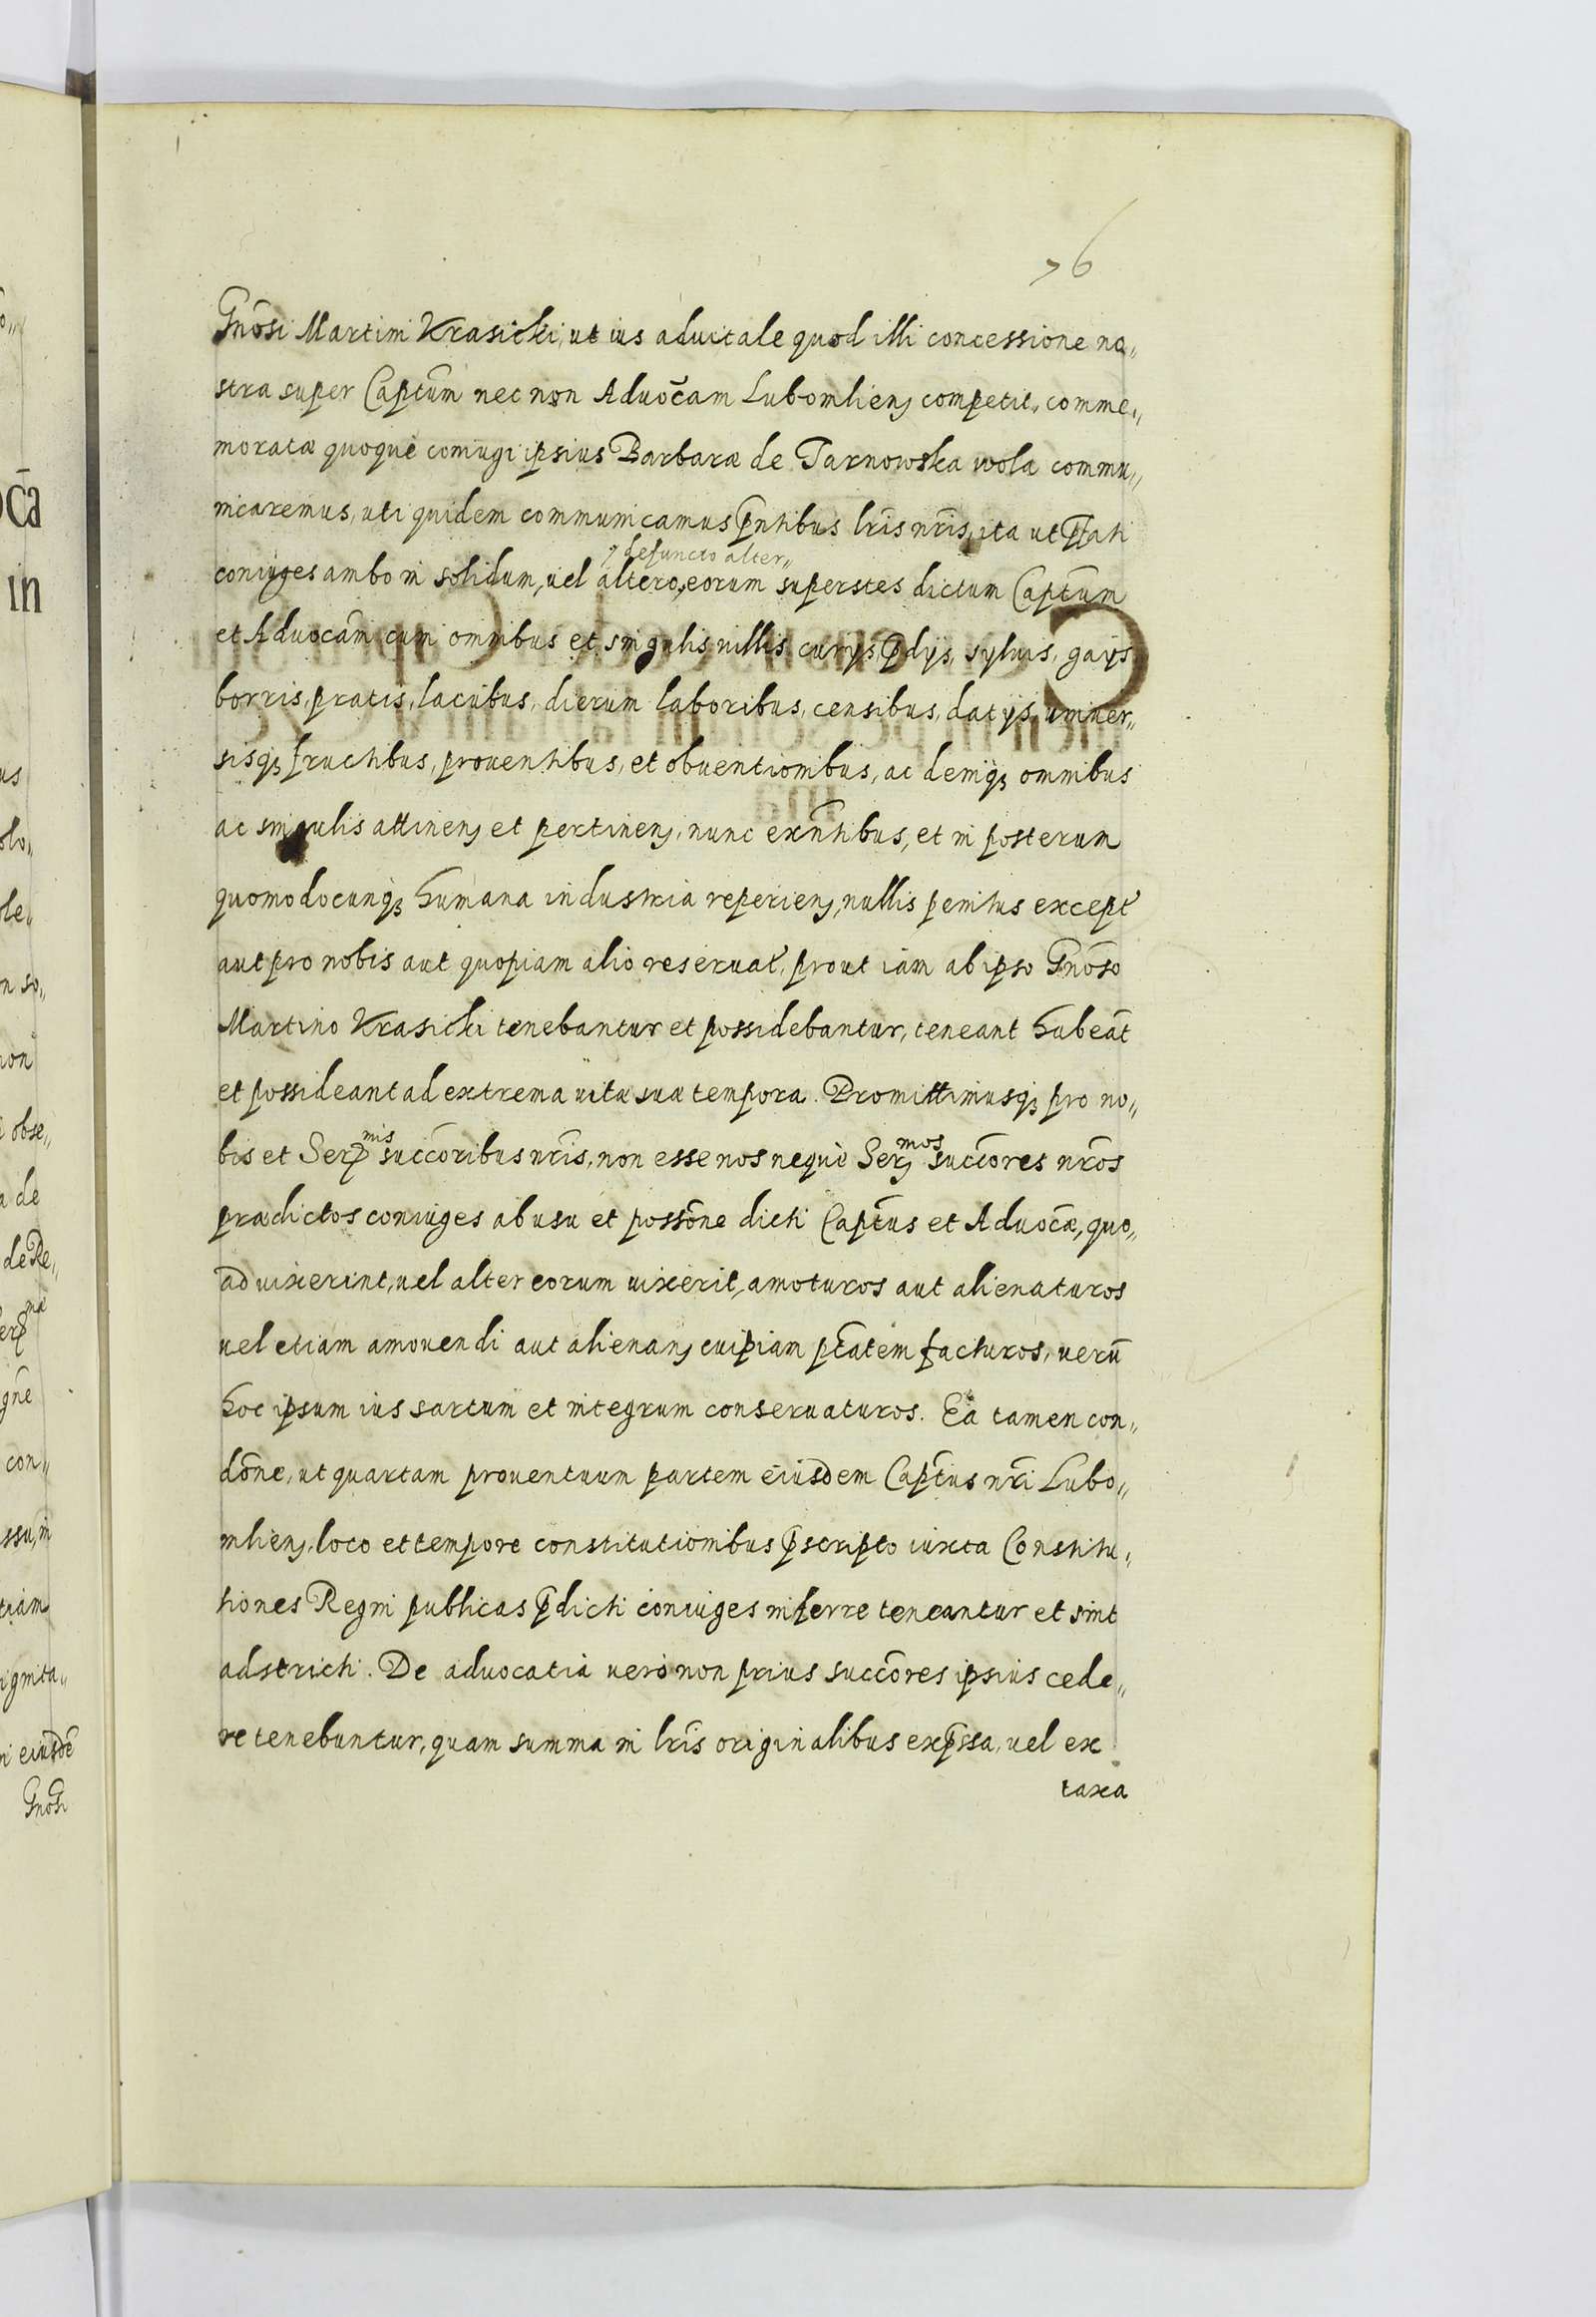 76
Gnõsi Martini Krasicki, ut ius aduitale quod illi concessione no„
stra super Captũm nec non Aduocãm Lubomliens competit, comme„
moratæ quoque coniugi ipsius Barbaræ de Tarnowska wola commu„
nicaremus, uti quidem communicamus p̃ntibus lr̃is nr̃is, ita ut p̃fati
defuncto alter„
coniuges ambo in solidum, uel altero, eorum superstes dictum Captũm
et Aduocãm cum omnibus et singulis uillis curijs, p̃dijs, syluis, gaijs
borris, pratis, lacubus, dierum laboribus, censibus, datijs, uniuer„
sisq3 fructibus, prouentibus, et obuentionibus, ac deniq3 omnibus
ac singulis attinens et pertinens, nunc exñtibus, et in posterum
quomodocunq3 humana industria reperiens, nullis penitus except̃
aut pro nobis aut quopiam alio reseruat̃, prout iam ab ipso Gnõso
Martino Krasicki tenebantur et possidebantur, teneant habeãt
et possideant ad extrema uitæ suæ tempora. Promittimusq3 pro no„
bis et Ser^mis succ̃oribus nr̃is, non esse nos neque Ser^mos succ̃ores nr̃os
prædictos coniuges ab usu et possõne dicti Captũs et Aduocæ̃, quo„
ad uixerint, uel alter eorum uixerit, amoturos aut alienaturos
uel etiam amouendi aut alienans cuipiam ptãtem facturos, uerũ
hoc ipsum ius sartum et integrum conseruaturos. Ea tamen con„
dõne, ut quartam prouentuum partem eiusdem Captũs nr̃i Lubo„
mliens, loco et tempore constitutionibus p̃scripto iuxta Constitu„
tiones Regni publicas p̃dicti coniuges inferre teneantur et sint
adstricti. De aduocatia uero non prius succ̃ores ipsius cede„
re tenebuntur, quam summa in lr̃is originalibus exp̃ssa, uel ex
taxa